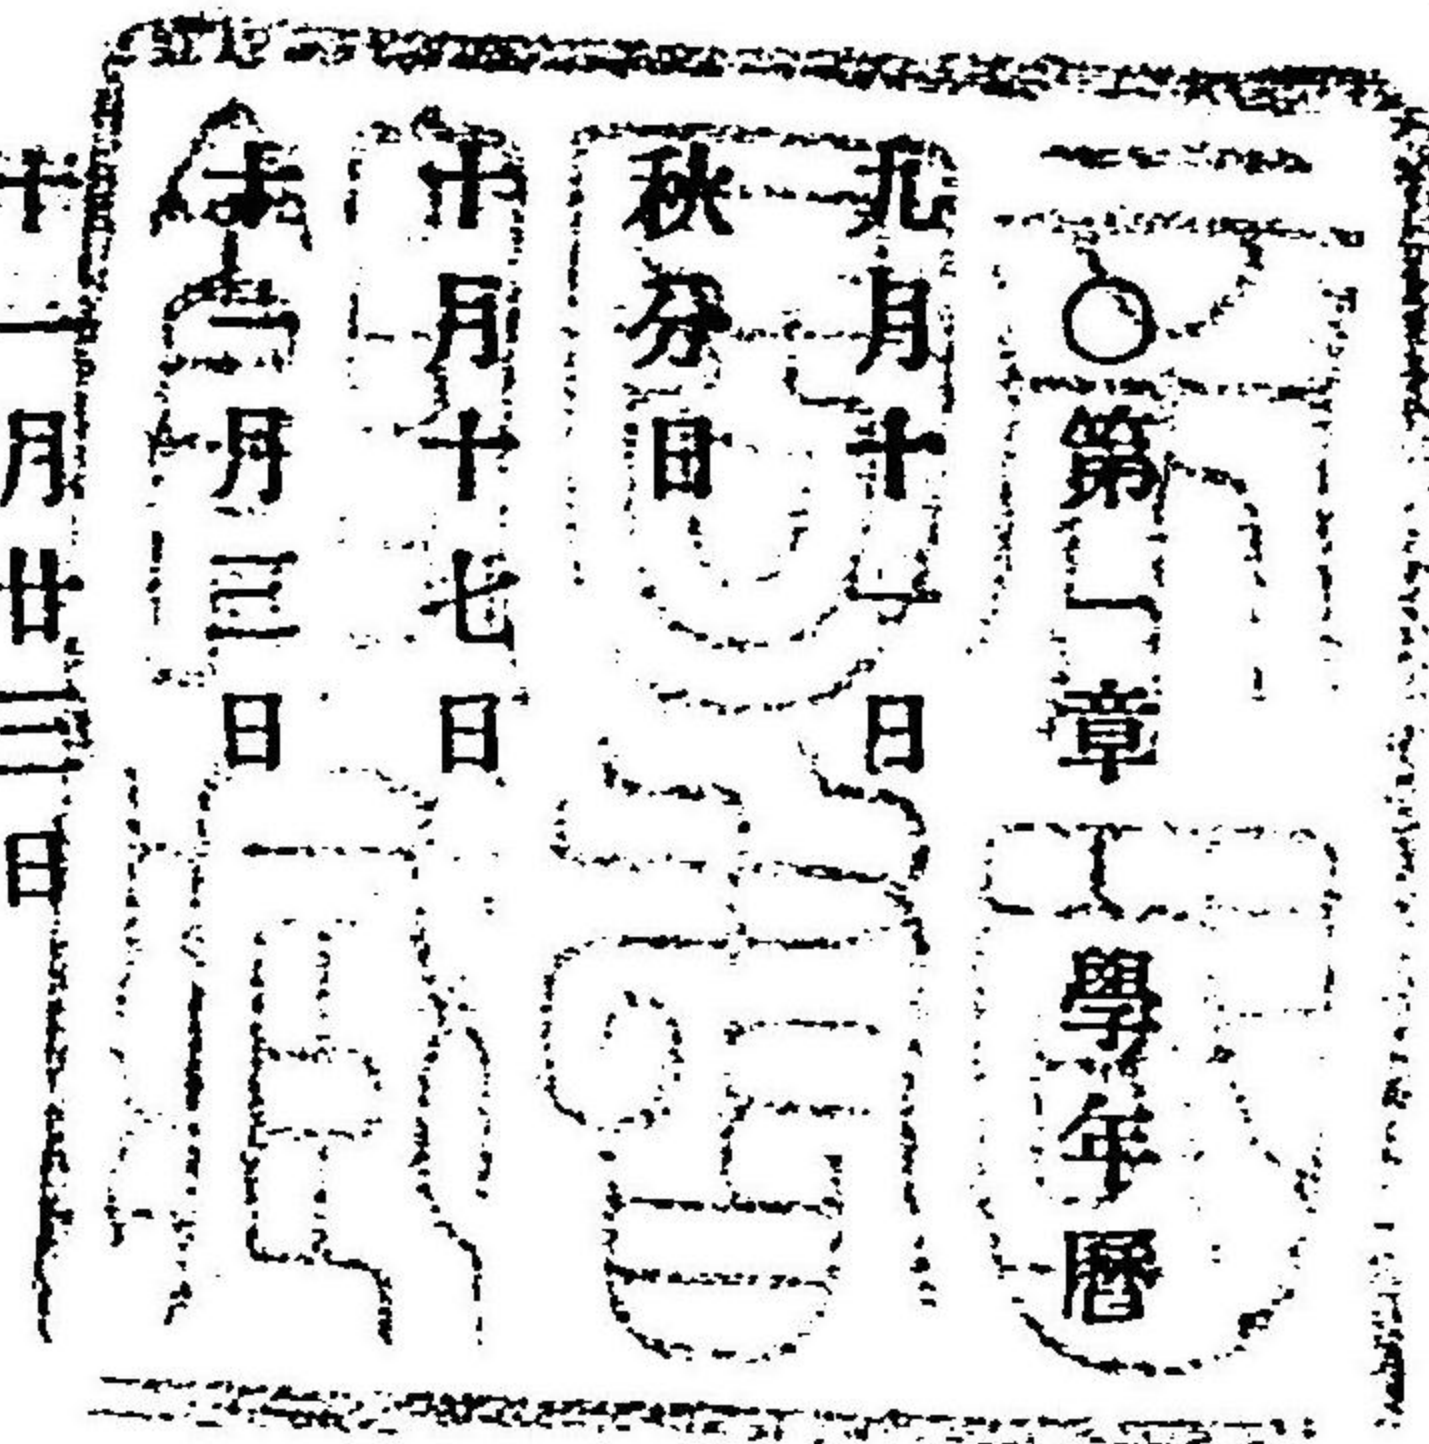 〇第一章 學年曆
九月十一日
秋分日
十月十七日
十一月三日
十一月廿三日